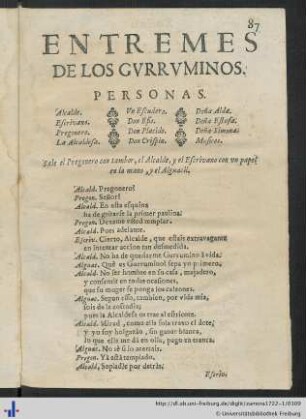 87
ENTREMES
DE LOS GVRRVMINOS.
PERSONAS.
Alcalde. Un Escudero. Doña Alda.
Escrivano. Don Doña Estafa.
Pregonero. Don Placido. Doña Ximena.
La Alcaldesa. Don Crispin. Musicos.
Sale el Pregonero con tambor, el Alcalde, y el Escrivano con un papel
en la mano, y el Alguacil.
Alcald. Pregonero?
Pregon. Señor?
Alcald. En esta esquina
ha de gritarse la primer paulina.
Pregon. Dexeme usted templar.
Alcald. Pues adelante.
Escriv. Cierto, Alcalde, que estais extravagante
en intentar accion tan desmedida.
Alcald. No ha de quedarme Gurrumino à vida.
Alguac. Què es Gurrumino? sepa yo primero.
Alcald. No ser hombre en su casa, majadero,
y consentir en todas ocasiones,
que su muger se ponga los calzones.
Alguac. Segun esso, tambien, por vida mia,
sois de la cofradia;
pues la Alcaldesa os trae al estricote.
Alcald. Mirad, como ella sola trato el dote,
y yo soy holgazàn, sin ganar blanca,
lo que ella me dà en olla, pago en tranca.
Alguac. No sè si lo acertais.
Pregon. Yà està templado.
Alcald. Sopladle por detràs;
Escriv.
http://dl.ub.uni-freiburg.de/diglit/zamora1722-1/0109
© Universitätsbibliothek Freiburg